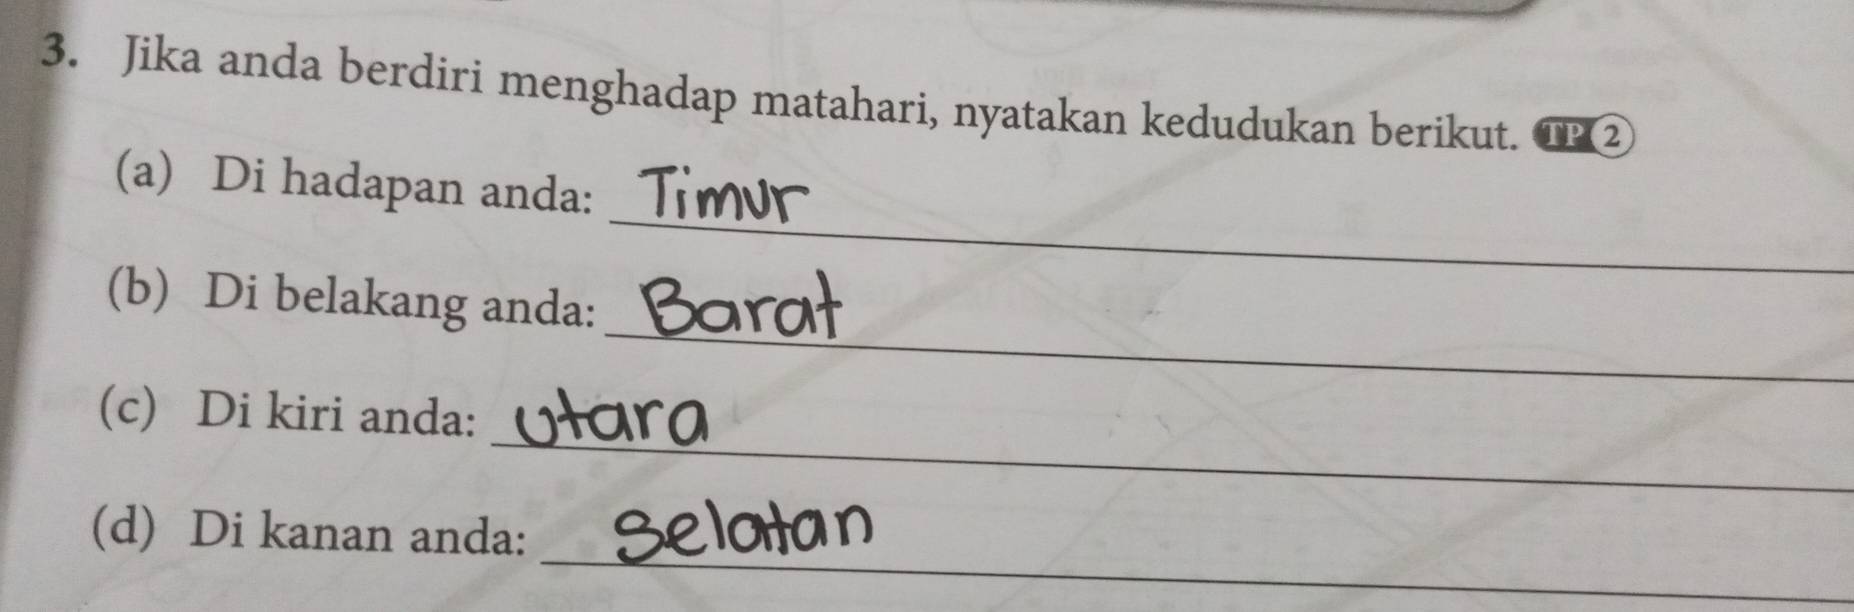 3. Jika anda berdiri menghadap matahari, nyatakan kedudukan berikut. TP 2
(a) Di hadapan anda: Timur
(b) Di belakang anda: Barat
(c) Di kiri anda: Utara
(d) Di kanan anda: Selatan